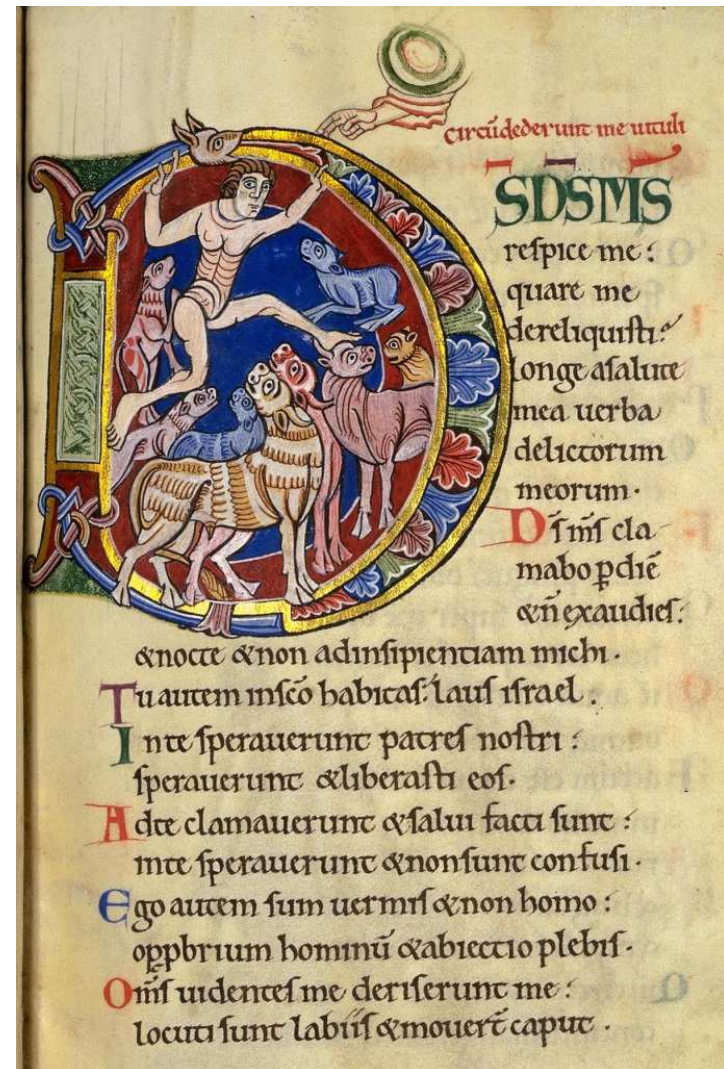 circũdederunt me uituli
DSDSMS
respice me:
quare me
dereliquisti:
longe a salute
mea uerba
delictorum
meorum.
Ds̄ ms̄ cla
mabo p diē
& ñ exaudies:
& nocte & non ad insipientiam michi.
Tu autem in scō habitas: laus israel.
In te sperauerunt patres nostri:
sperauerunt & liberasti eos.
Ad te clamauerunt & salui facti sunt:
in te sperauerunt & non sunt confusi.
Ego autem sum uermis & non homo:
opp̱brium hominū & abiectio plebis.
Oms̄ uidentes me deriserunt me:
locuti sunt labiis & mouert̄ caput.